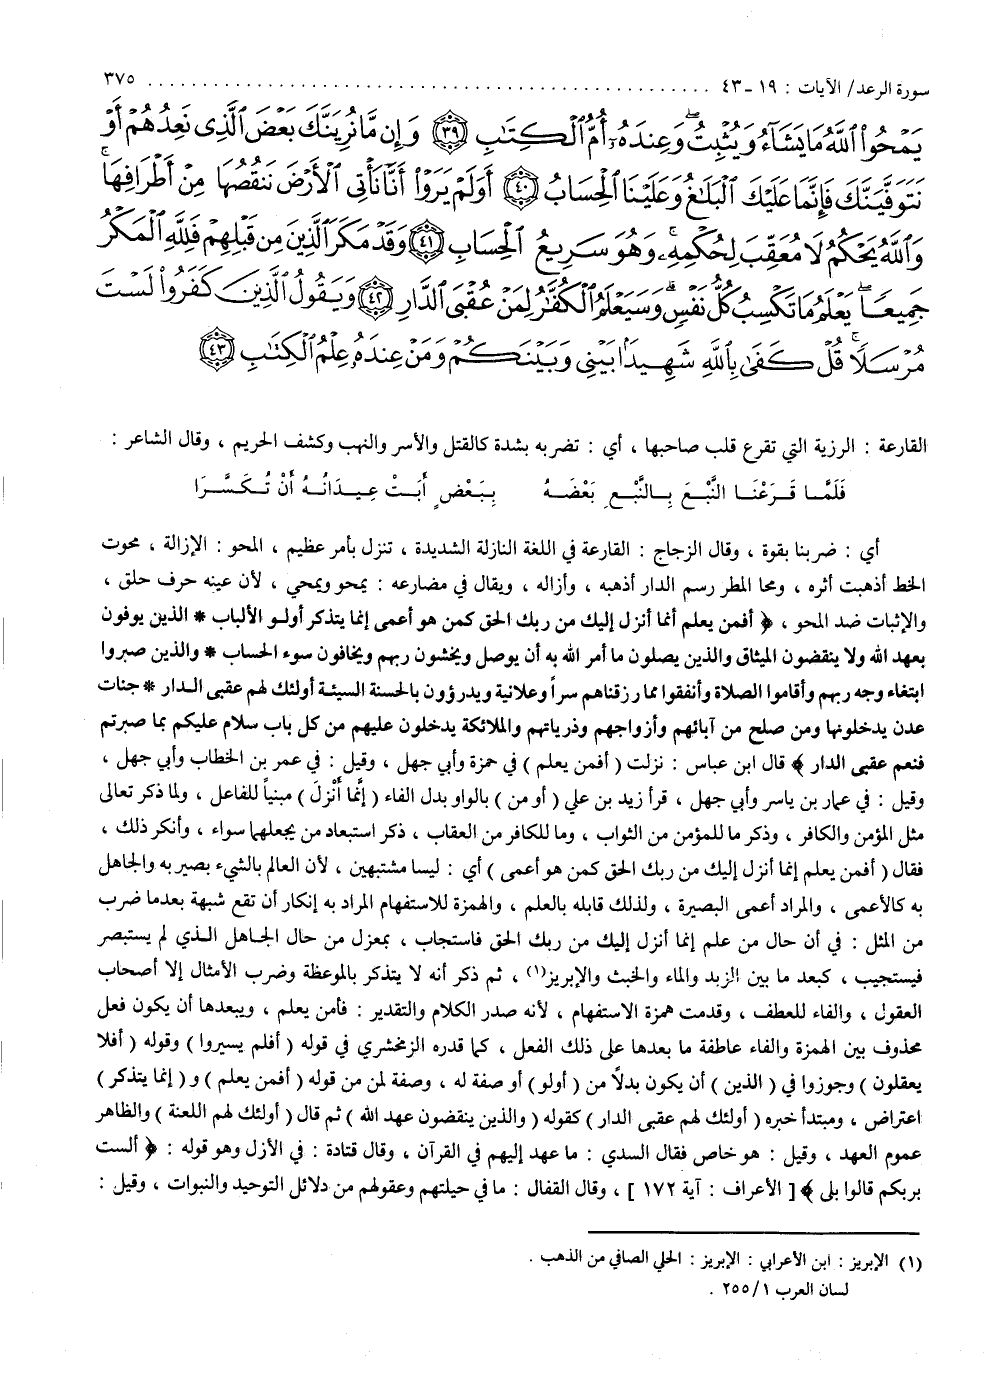 سورة الرعد/ الآيات : ١٩ -٤٣ ........................................ ٣٧٥
يَمْحُوا۟ ٱللَّهُ مَا يَشَآءُ وَيُثْبِتُ ۖ وَعِندَهُۥٓ أُمُّ ٱلْكِتَٰبِ ﴿٣٩﴾ وَإِن مَّا نُرِيَنَّكَ بَعْضَ ٱلَّذِى نَعِدُهُمْ أَوْ
نَتَوَفَّيَنَّكَ فَإِنَّمَا عَلَيْكَ ٱلْبَلَٰغُ وَعَلَيْنَا ٱلْحِسَابُ ﴿٤٠﴾ أَوَلَمْ يَرَوْا۟ أَنَّا نَأْتِى ٱلْأَرْضَ نَنقُصُهَا مِنْ أَطْرَافِهَا ۚ
وَٱللَّهُ يَحْكُمُ لَا مُعَقِّبَ لِحُكْمِهِۦ ۚ وَهُوَ سَرِيعُ ٱلْحِسَابِ ﴿٤١﴾ وَقَدْ مَكَرَ ٱلَّذِينَ مِن قَبْلِهِمْ فَلِلَّهِ ٱلْمَكْرُ
جَمِيعًا ۖ يَعْلَمُ مَا تَكْسِبُ كُلُّ نَفْسٍ ۗ وَسَيَعْلَمُ ٱلْكُفَّٰرُ لِمَنْ عُقْبَى ٱلدَّارِ ﴿٤٢﴾ وَيَقُولُ ٱلَّذِينَ كَفَرُوا۟ لَسْتَ
مُرْسَلًا ۚ قُلْ كَفَىٰ بِٱللَّهِ شَهِيدًۢا بَيْنِى وَبَيْنَكُمْ وَمَنْ عِندَهُۥ عِلْمُ ٱلْكِتَٰبِ ﴿٤٣﴾
القارعة : الرزية التي تقرع قلب صاحبها ، أي : تضربه بشدة كالقتل والأسر والنهب وكشف الحريم ، وقال الشاعر :
فَلَمَّا قَرَعْنَا النَّبْعَ بِالنَّبْعِ بَعْضَهُ     بِبَعْضٍ أَبَتْ عِيدَانُهُ أَنْ تُكَسَّرَا
أي : ضربنا بقوة ، وقال الزجاج : القارعة في اللغة النازلة الشديدة ، تنزل بأمر عظيم ، المحو : الإزالة ، محوت
الخط أذهبت أثره ، ومحا المطر رسم الدار أذهبه ، وأزاله ، ويقال في مضارعه : يمحو ويمحي ، لأن عينه حرف حلق ،
والإثبات ضد المحو ، ﴿ أفمن يعلم أنما أنزل إليك من ربك الحق كمن هو أعمى إنما يتذكر أولو الألباب * الذين يوفون
بعهد الله ولا ينقضون الميثاق والذين يصلون ما أمر الله به أن يوصل ويخشون ربهم ويخافون سوء الحساب * والذين صبروا
ابتغاء وجه ربهم وأقاموا الصلاة وأنفقوا مما رزقناهم سراً وعلانية ويدرؤون بالحسنة السيئة أولئك لهم عقبى الدار * جنات
عدن يدخلونها ومن صلح من آبائهم وأزواجهم وذرياتهم والملائكة يدخلون عليهم من كل باب سلام عليكم بما صبرتم
فنعم عقبى الدار ﴾ قال ابن عباس : نزلت ( أفمن يعلم ) في حمزة وأبي جهل ، وقيل : في عمر بن الخطاب وأبي جهل ،
وقيل : في عمار بن ياسر وأبي جهل ، قرأ زيد بن علي ( أو من ) بالواو بدل الفاء ( إِنَّما أَنْزَلَ ) مبنياً للفاعل ، ولما ذكر تعالى
مثل المؤمن والكافر ، وذكر ما للمؤمن من الثواب ، وما للكافر من العقاب ، ذكر استبعاد من يجعلهما سواء ، وأنكر ذلك ،
فقال ( أفمن يعلم إنما أنزل إليك من ربك الحق كمن هو أعمى ) أي : ليسا مشتبهين ، لأن العالم بالشيء بصير به والجاهل
به كالأعمى ، والمراد أعمى البصيرة ، ولذلك قابله بالعلم ، والهمزة للاستفهام المراد به إنكار أن تقع شبهة بعدما ضرب
من المثل : في أن حال من علم إنما أنزل إليك من ربك الحق فاستجاب ، بمعزل من حال الجاهل الذي لم يستبصر
فيستجيب ، كبعد ما بين الزبد والماء والخبث والإبريز(١) ، ثم ذكر أنه لا يتذكر بالموعظة وضرب الأمثال إلا أصحاب
العقول ، والفاء للعطف ، وقدمت همزة الاستفهام ، لأنه صدر الكلام والتقدير : فأمن يعلم ، ويبعدها أن يكون فعل
محذوف بين الهمزة والفاء عاطفة ما بعدها على ذلك الفعل ، كما قدره الزمخشري في قوله ( أفلم يسيروا ) وقوله ( أفلا
يعقلون ) وجوزوا في ( الذين ) أن يكون بدلاً من ( أولو ) أو صفة له ، وصفة لمن من قوله ( أفمن يعلم ) و ( إنما يتذكر )
اعتراض ، ومبتدأ خبره ( أولئك لهم عقبى الدار ) كقوله ( والذين ينقضون عهد الله ) ثم قال ( أولئك لهم اللعنة ) والظاهر
عموم العهد ، وقيل : هو خاص فقال السدي : ما عهد إليهم في القرآن ، وقال قتادة : في الأزل وهو قوله : ﴿ ألست
بربكم قالوا بلى ﴾ [ الأعراف : آية ١٧٢ ] ، وقال القفال : ما في حيلتهم وعقولهم من دلائل التوحيد والنبوات ، وقيل :
(١) الإبريز : ابن الأعرابي : الإبريز : الحلي الصافي من الذهب .
لسان العرب ٢٥٥/١ .